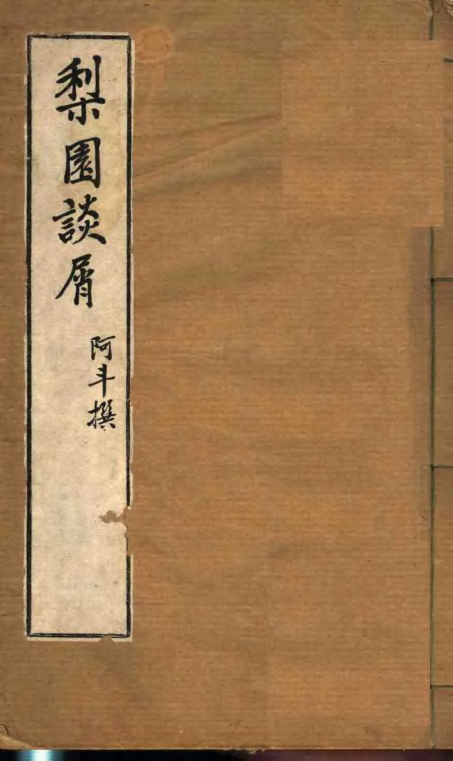 梨園談屑
阿斗撰